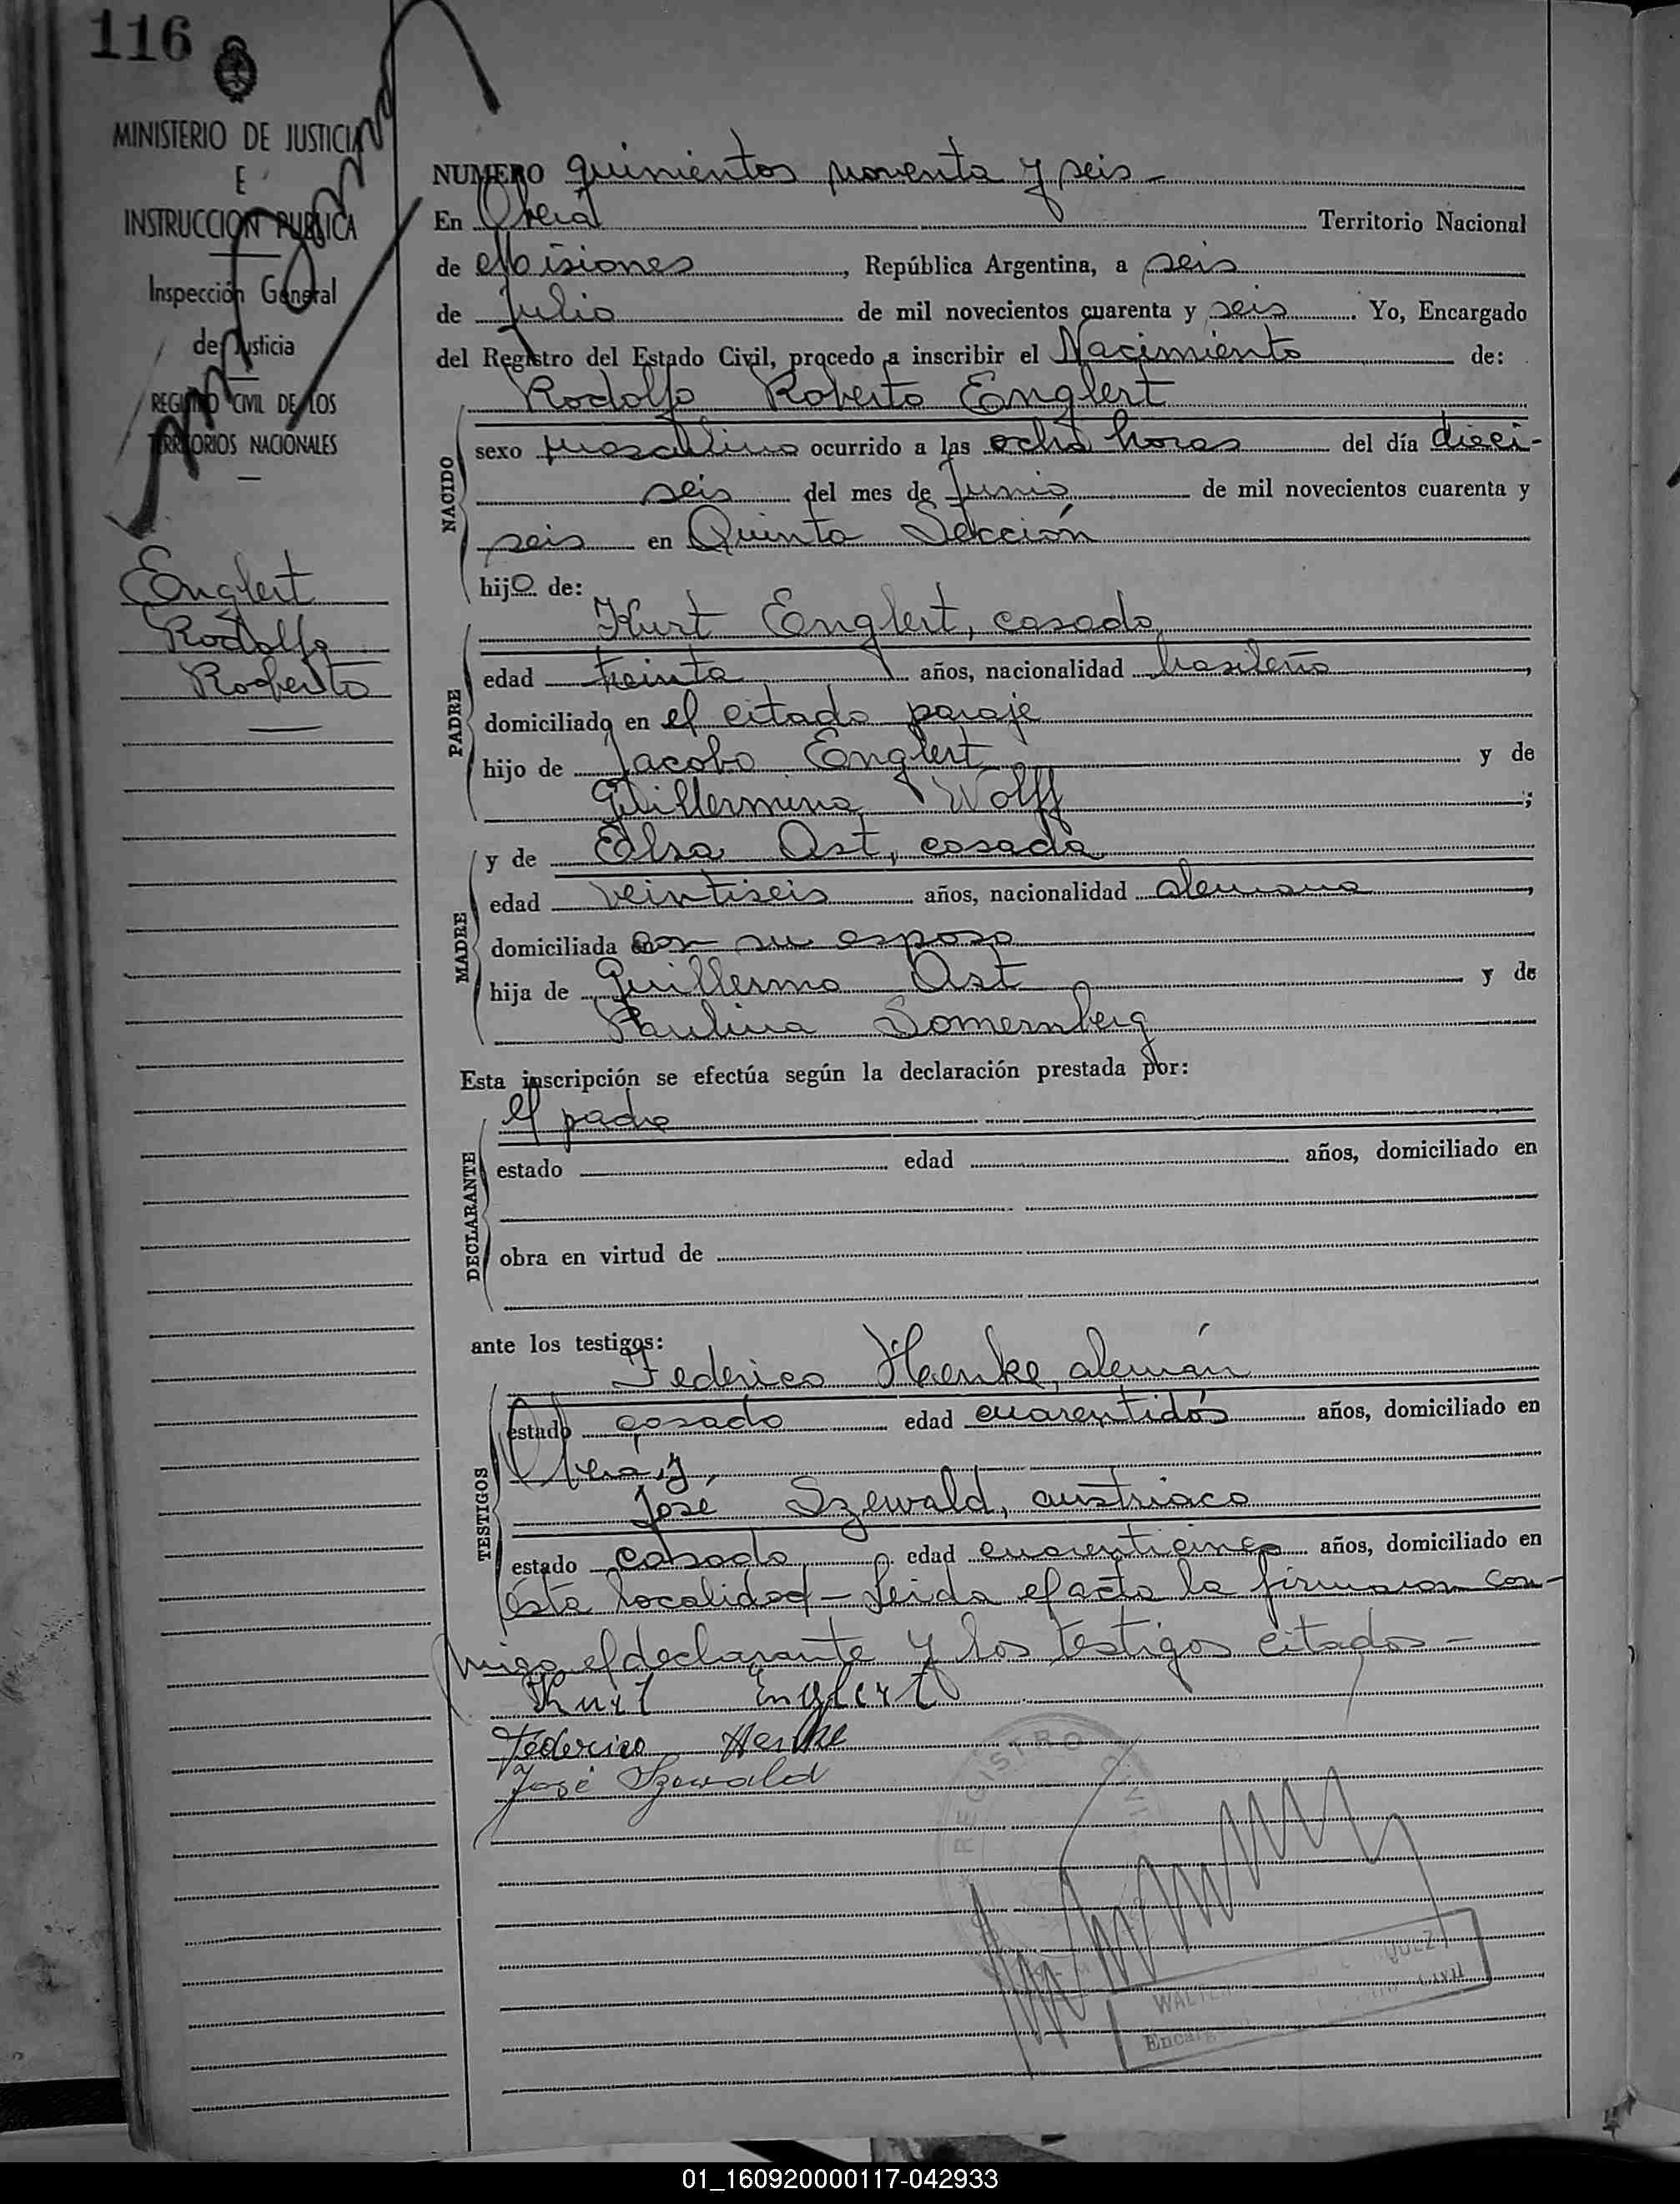 116
MINISTERIO DE JUSTICIA
E
INSTRUCCION PUBLICA
Inspección General
de Justicia
REGISTRO CIVIL DE LOS
TERRITORIOS NACIONALES
Englert
Rodolfo
Roberto
NUMERO quinientos noventa y seis
En Oberá Territorio Nacional
de Misiones, República Argentina, a seis
de Julio de mil novecientos cuarenta y seis. Yo, Encargado
del Registro del Estado Civil, procedo a inscribir el Nacimiento de:
Rodolfo Roberto Englert
NACIDO
sexo masculino ocurrido a las ocho horas del día dieci-
seis del mes de Junio de mil novecientos cuarenta y
seis en Quinta Sección
hijo de:
Kurt Englert, casado
PADRE
edad treinta años, nacionalidad brasileña,
domiciliado en el citado paraje
hijo de Jacobo Englert y de
Guillermina Wolff;
y de Elsa Ost, casada
MADRE
edad veintiseis años, nacionalidad alemana,
domiciliada con su esposo
hija de Guillermo Ost y de
Paulina Somernberg
Esta inscripción se efectúa según la declaración prestada por:
el padre
DECLARANTE
estado edad años, domiciliado en
obra en virtud de
ante los testigos:
Federico Henke, alemán
TESTIGOS
estado casado edad cuarentidós años, domiciliado en
Oberá, y,
José Szewald, austriaco
estado casado edad cuarenticinco años, domiciliado en
ésta localidad - Leida el acta la firmaron con-
migo el declarante y los testigos citados -
Kurt Englert
Federico Henke
José Szewald
REGISTRO CIVIL
WALTER
Encargado
CIVIL
01_160920000117-042933